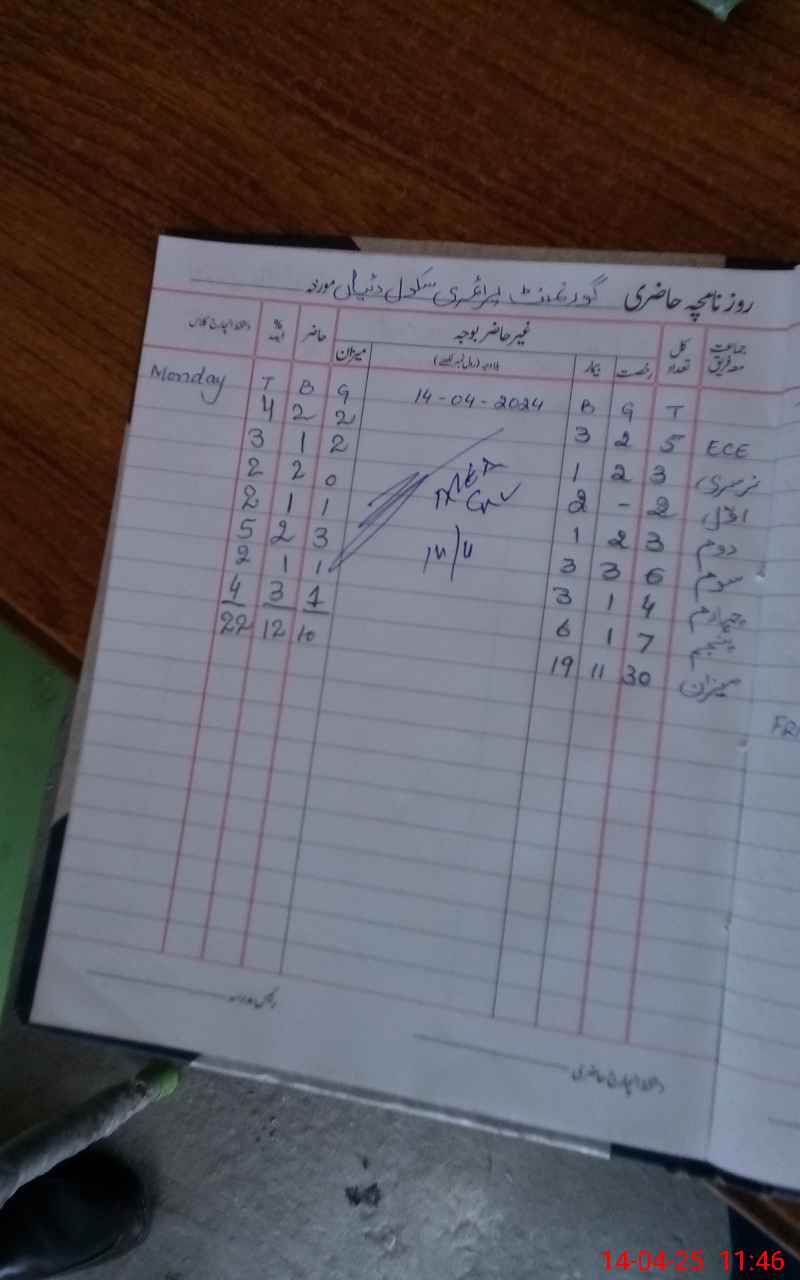 روزنامچہ حاضری گورنمنٹ پرائمری سکول دتیاں مورخہ
جماعت معہ فریق کل تعداد غیر حاضر بوجہ حاضر %
رخصت بیمار میزان
T G B 14-04-2024 G B T Monday
ECE 5 2 3 2 2 4
نرسری 3 2 1 2 1 3
اوّل 2 - 2 0 2 2
دوم 3 2 1 1 1 2
سوم 6 3 3 3 2 5
چہارم 4 1 3 1 1 2
پنجم 7 1 6 1 3 4
میزان 30 11 19 10 12 22
14/4
FRI
دستخط انچارج حاضری
14-04-25 11:46